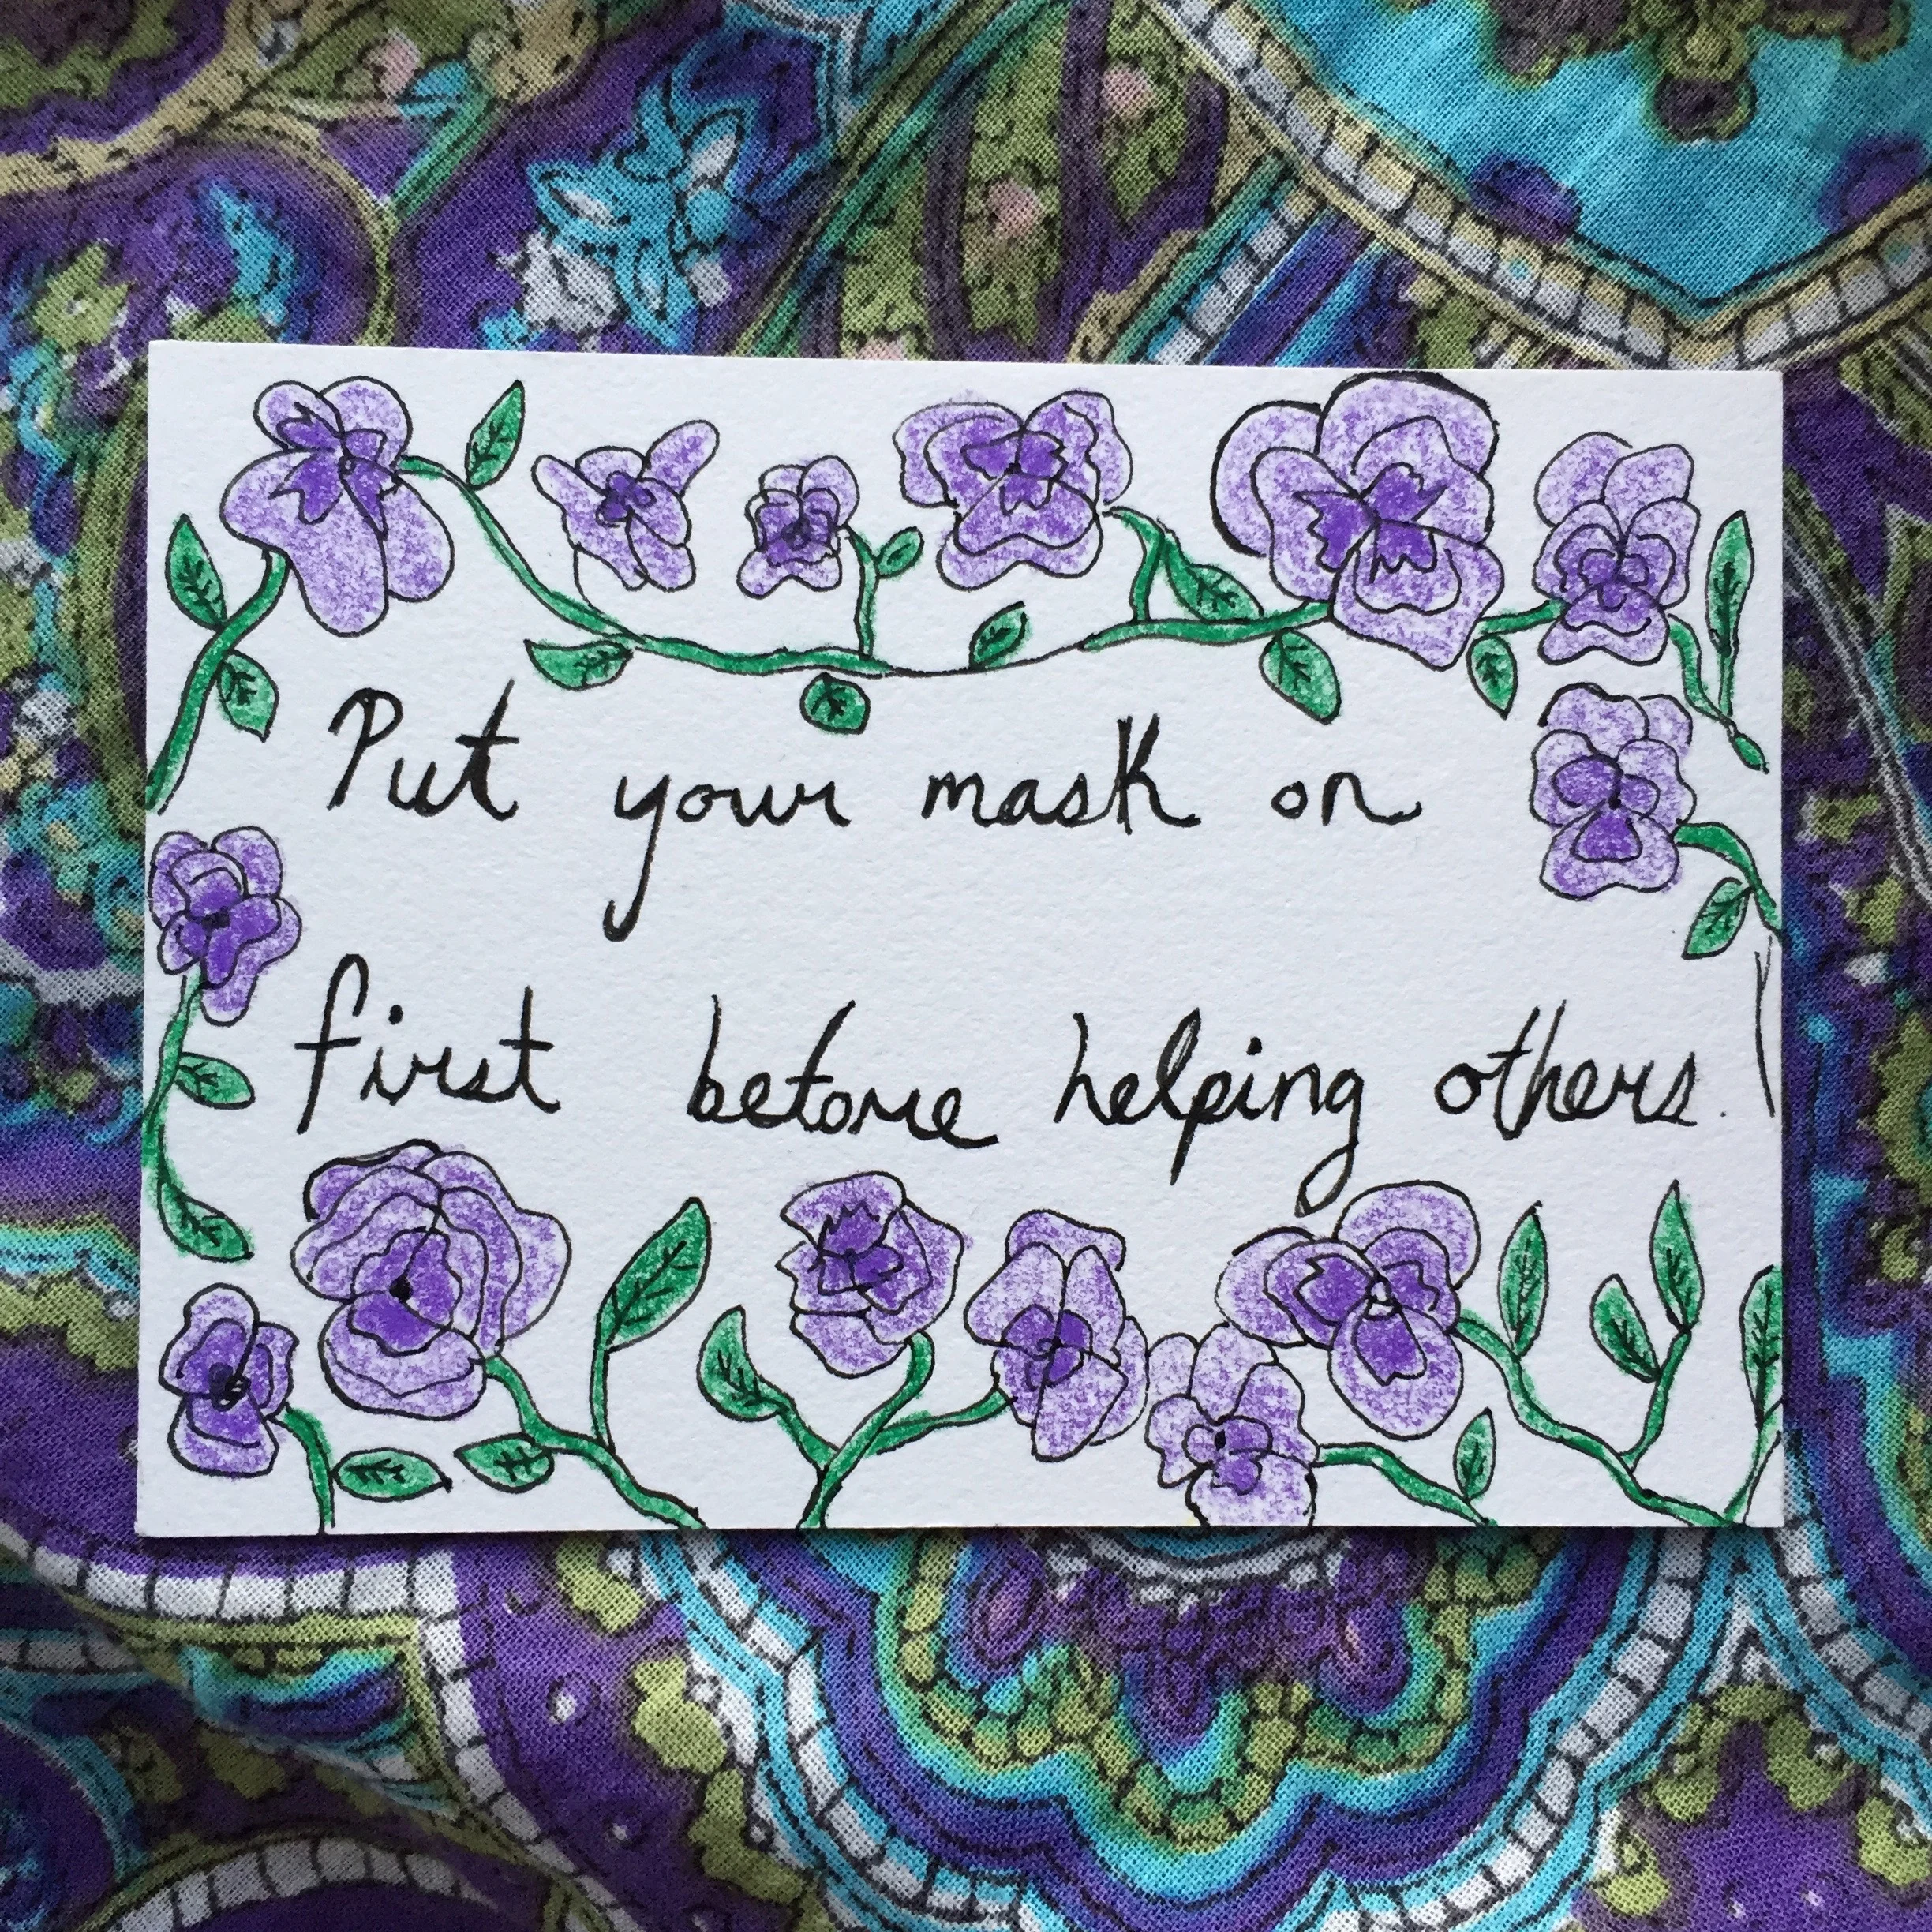 Put your mask on
first before helping others.